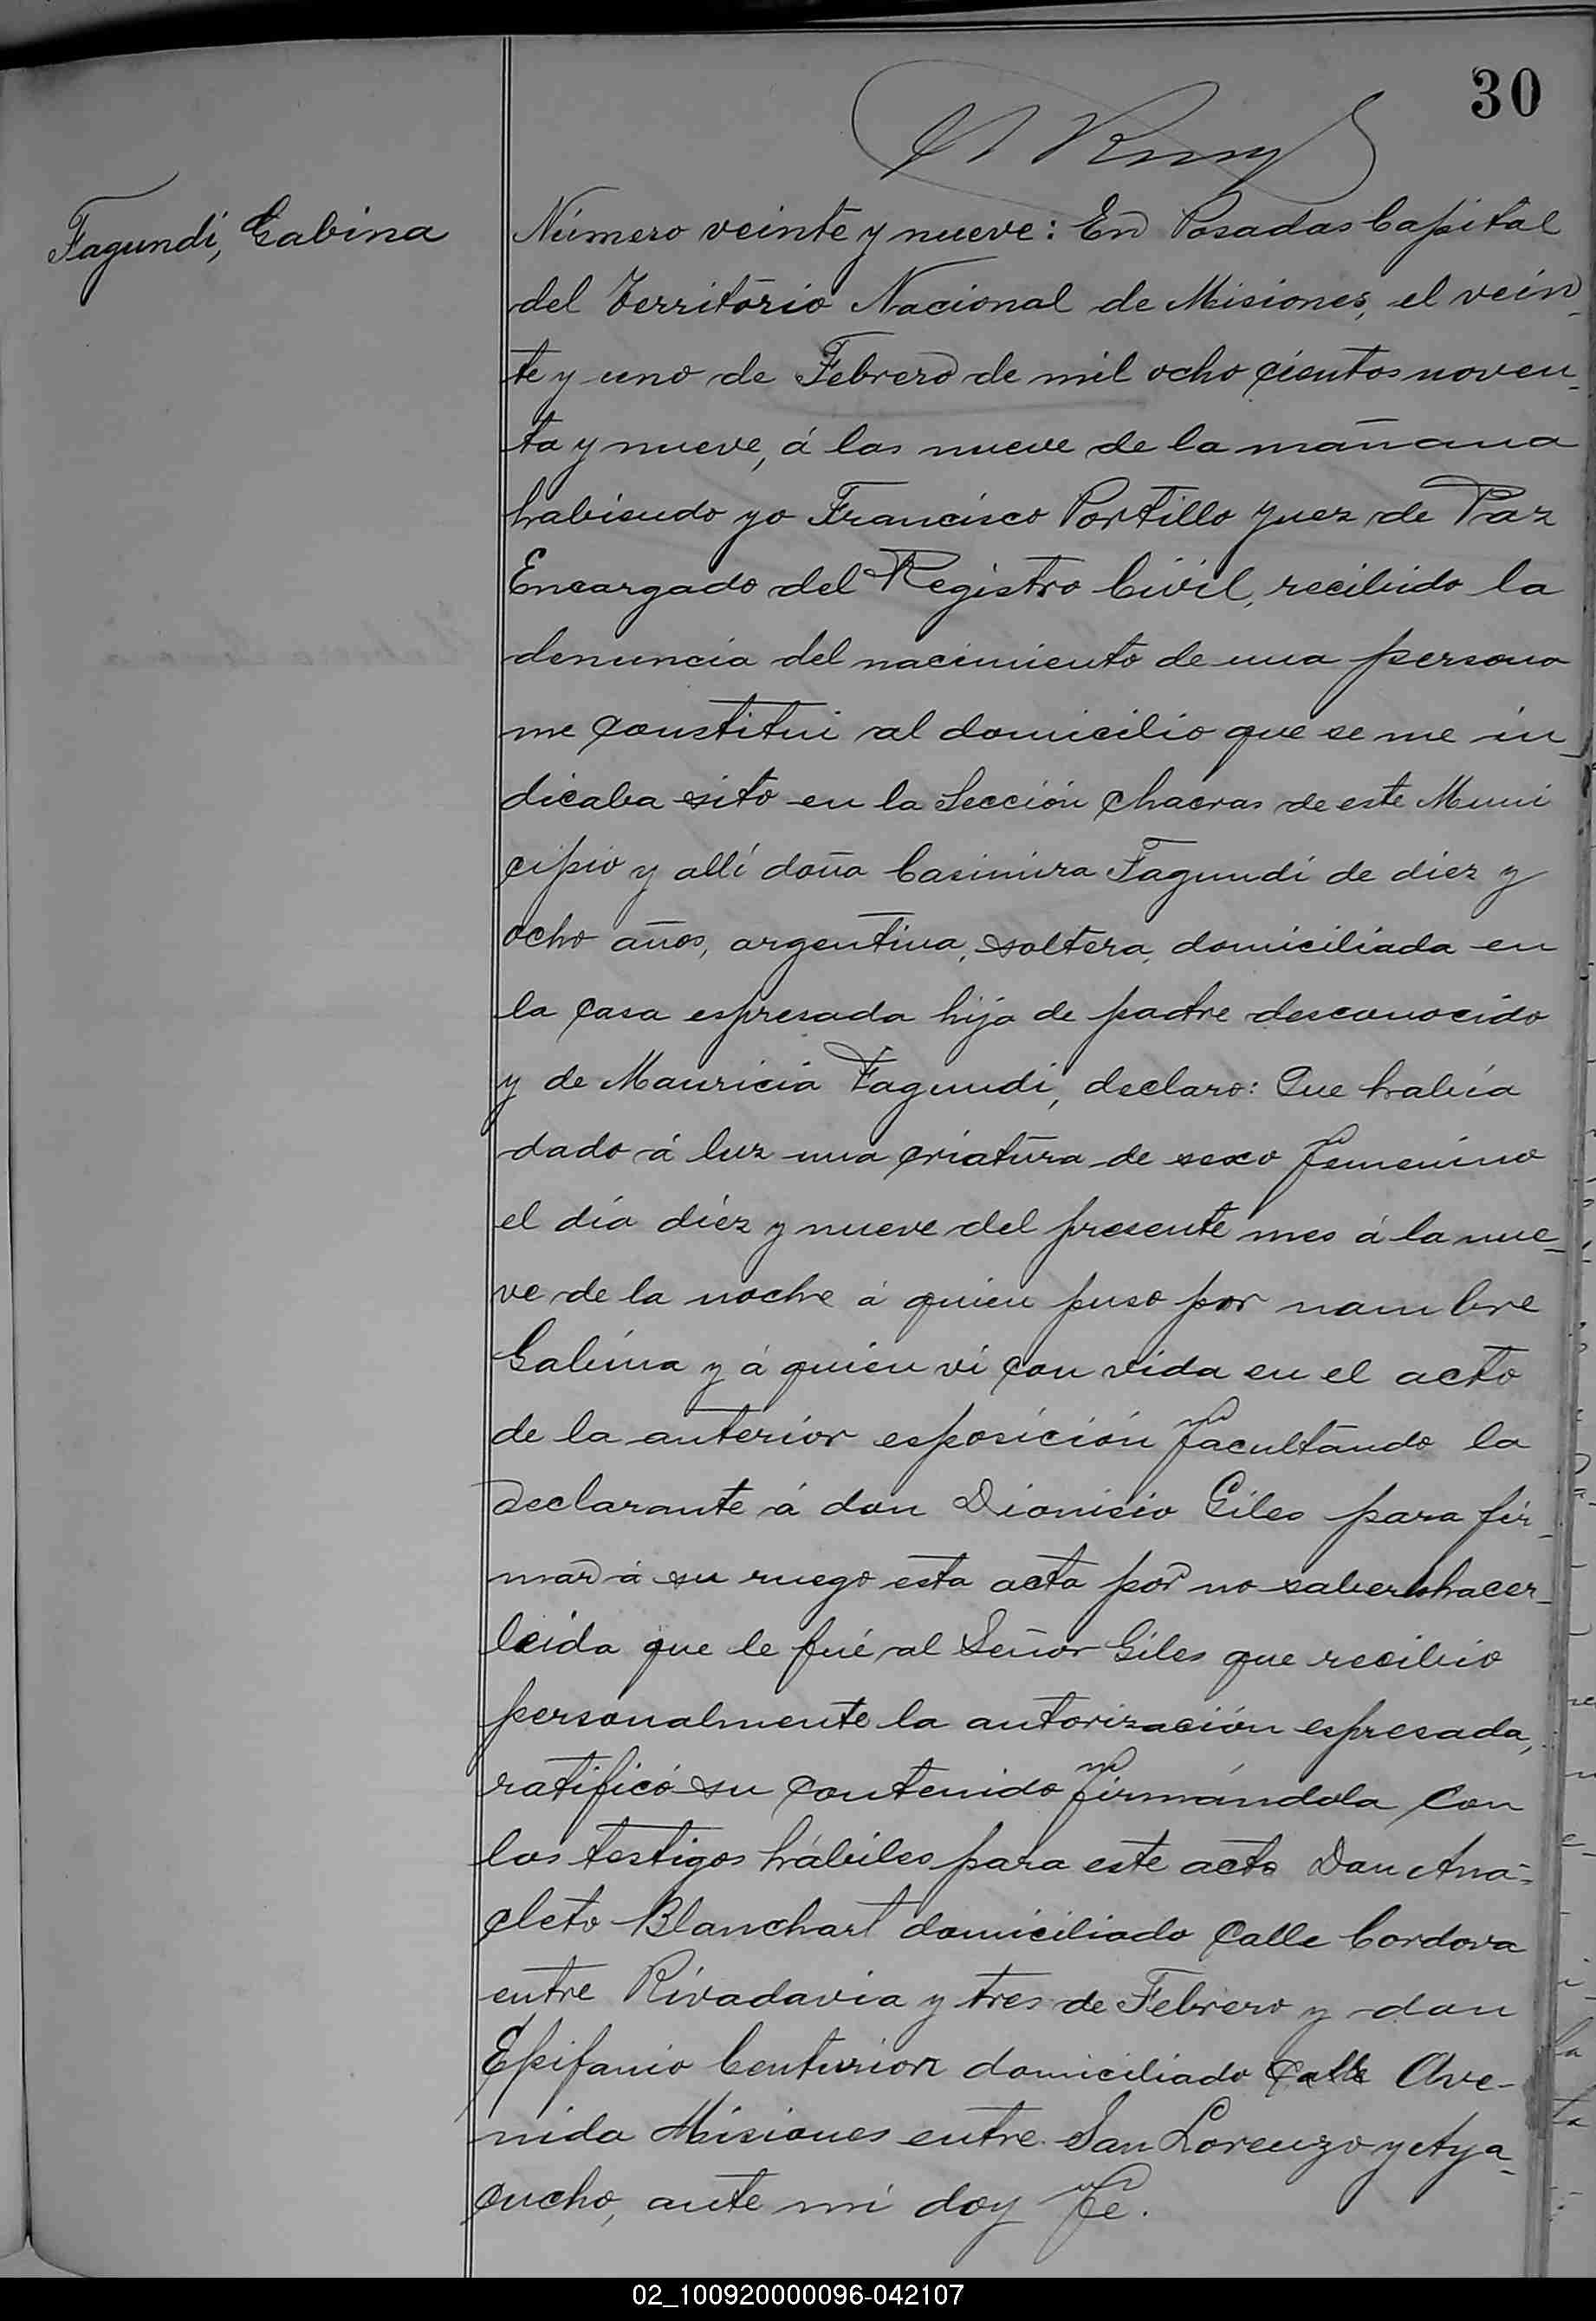 30
Fagundi, Gabina
Número veinte y nueve: En Posadas Capital
del Territorio Nacional de Misiones, el vein
te y uno de Febrero de mil ocho cientos noven-
ta y nueve, á las nueve de la mañana
habiendo yo Francisco Portillo Juez de Paz
Encargado del Registro Civil, recibido la
denuncia del nacimiento de una persona
me constitui al domicilio que se me in_
dicaba sito en la Sección Chacras de este Muni
cipio y allí doña Casimira Fagundi de diez y
ocho años, argentina, soltera, domiciliada en
la casa espresada hija de padre desconocido
y de Mauricia Fagundi, declaro: Que habia
dado á luz una criatura de sexo femenino
el día diez y nueve del presente mes á la nue_
ve de la noche á quien puso por nombre
Gabina y á quien vi con vida en el acto
de la anterior esposición facultando la
declarante á don Dionisio Giles para fir_
mar á su ruego esta acta por no saberlo hacer_
leida que le fué al Señor Giles que recibio
personalmente la autorización espresada,
ratificó su contenido firmándola con
los testigos hábiles para este acto Don Ana-
cleto Blanchart domiciliado Calle Cordova
entre Rivadavia y tres de Febrero y don
Epifanio Centurion domiciliado Calle Ave-
nida Misiones entre San Lorenzo y Aya-
cucho, ante mi doy fe.
02_100920000096-042107